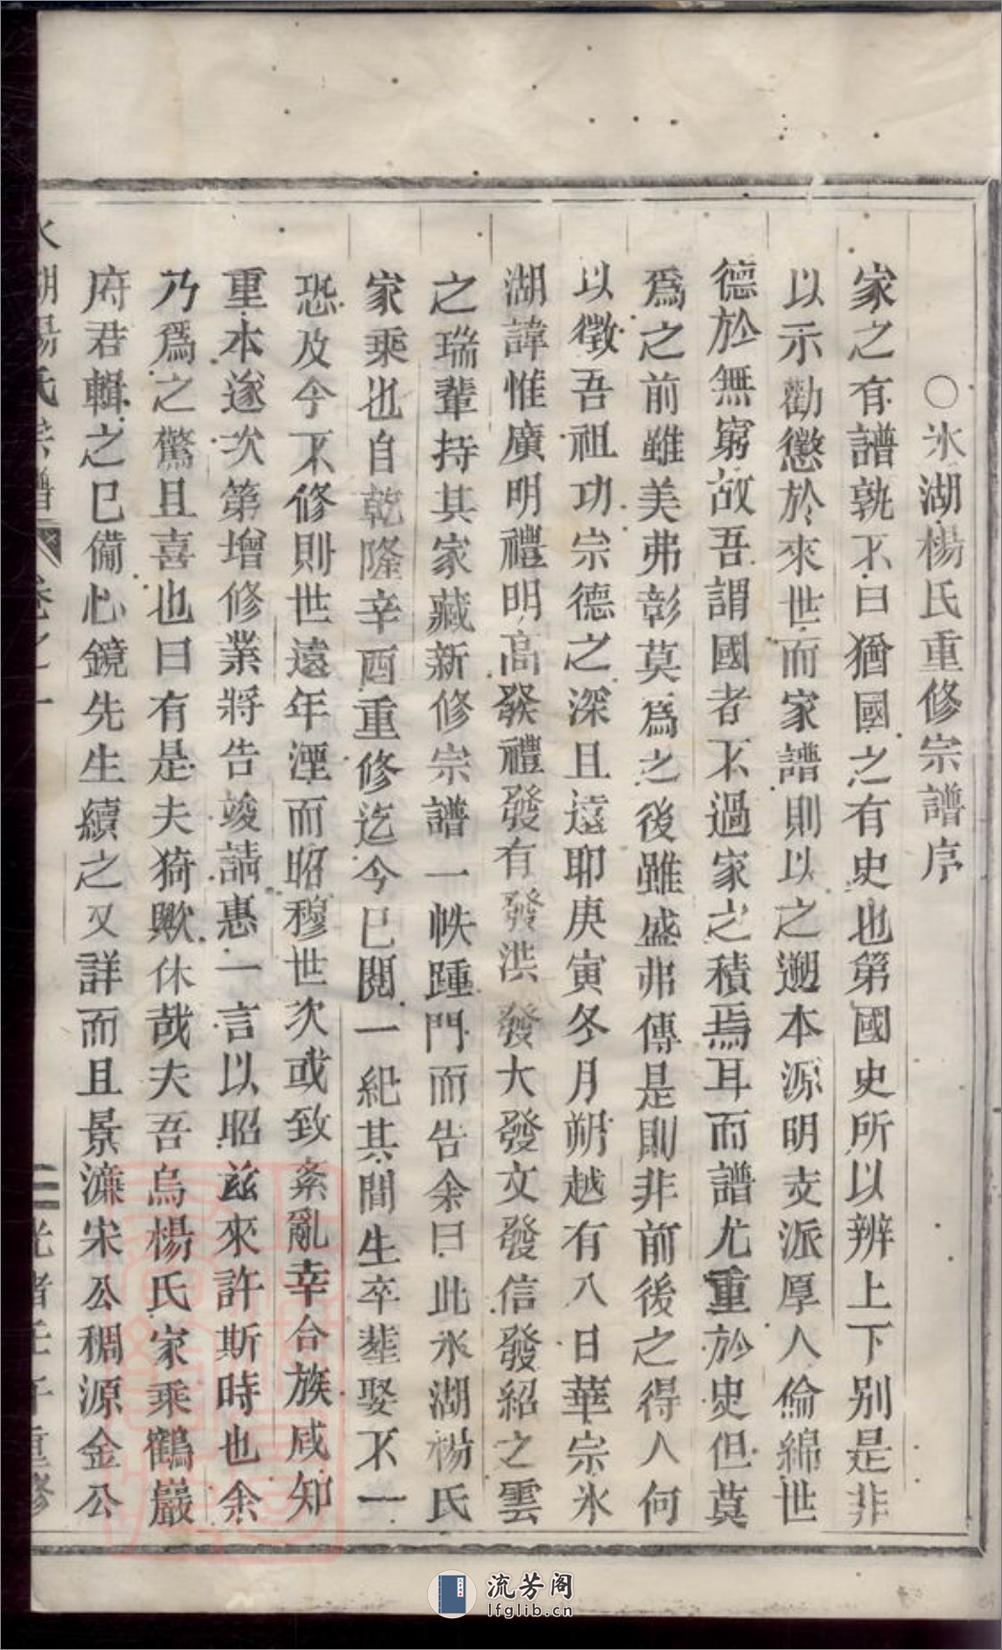 ○氷湖楊氏重修宗譜序
家之有譜孰不曰猶國之有史也第國史所以辨上下别是非
以示勸懲於來世而家譜則以之遡本源明支派厚人倫綿世
德於無窮故吾謂國者不過家之積焉耳而譜尤重於史但莫
爲之前雖美弗彰莫爲之後雖盛弗傳是則非前後之得人何
以徵吾祖功宗德之深且遠耶庚寅冬月朔越有八日華宗氷
湖諱惟廣明禮明高發禮發有發洪發大發文發信發紹之雲
之瑞輩持其家藏新修宗譜一帙踵門而告余曰此氷湖楊氏
家乘也自乾隆辛酉重修迄今已閱一紀其間生卒塟娶不一
恐及今不修則世遠年湮而昭穆世次或致紊亂幸合族咸知
重本遂次第增修業將告竣請惠一言以昭兹來許斯時也余
乃爲之驚且喜也曰有是夫猗歟休哉夫吾烏楊氏家乘鶴巖
府君輯之已備心鏡先生續之又詳而且景濂宋公稠源金公
氷湖楊氏宗譜 卷之一 二 光緒壬午重修
流芳阁
lfglib.cn